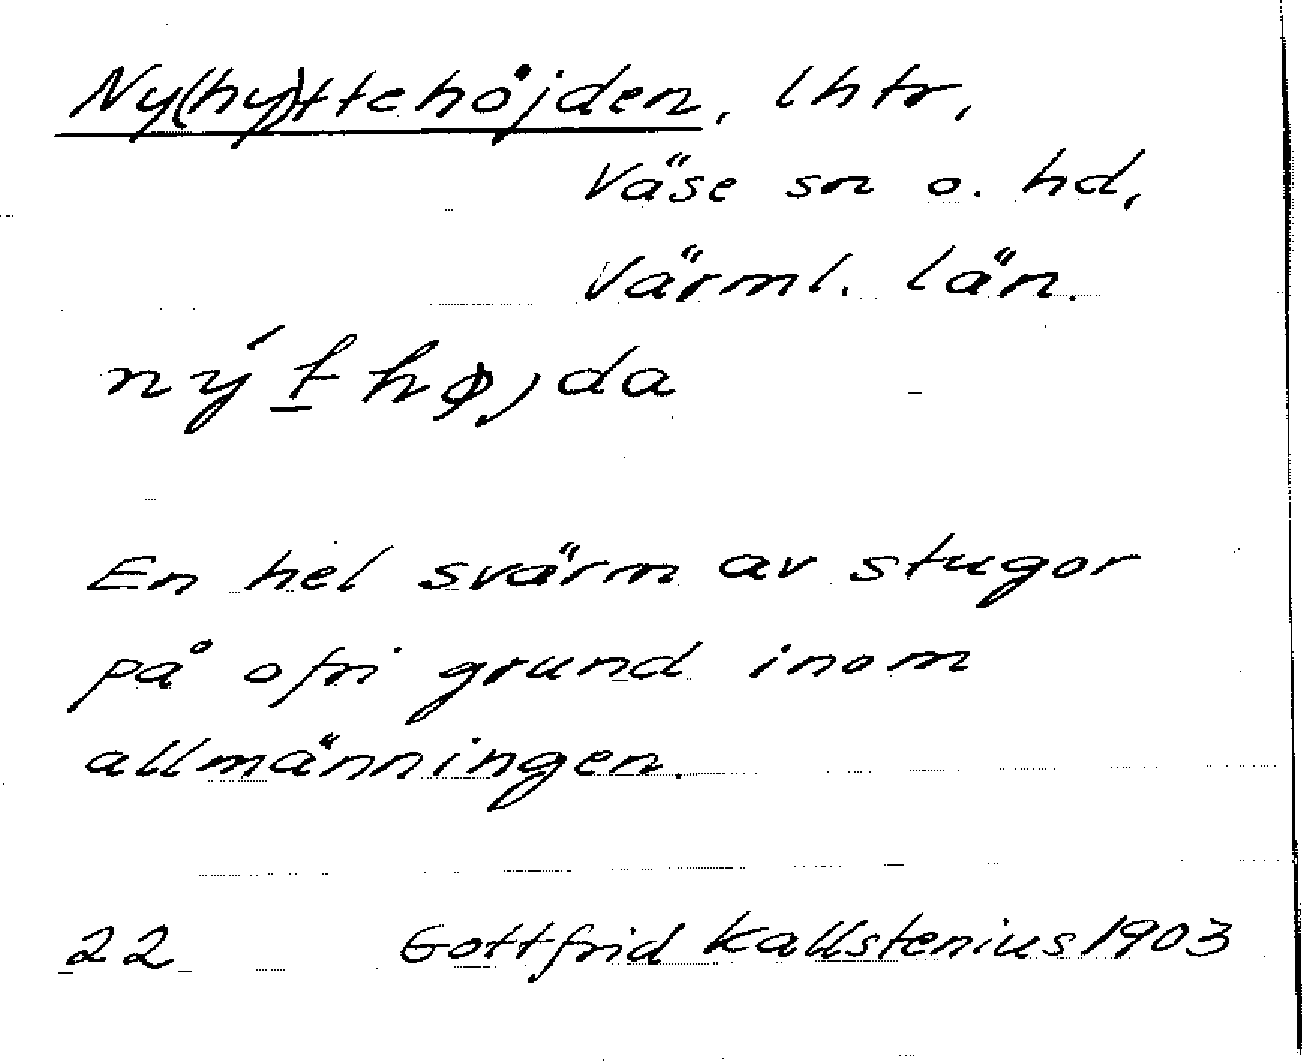 Ny(hy)ttehöjden, lhtr,
Väse sn o. hd,
Värml. län.
ný t hø, da
En hel svärm av stugor
på ofri grund inom
allmänningen.
22 Gottfrid Kallstenius 1903